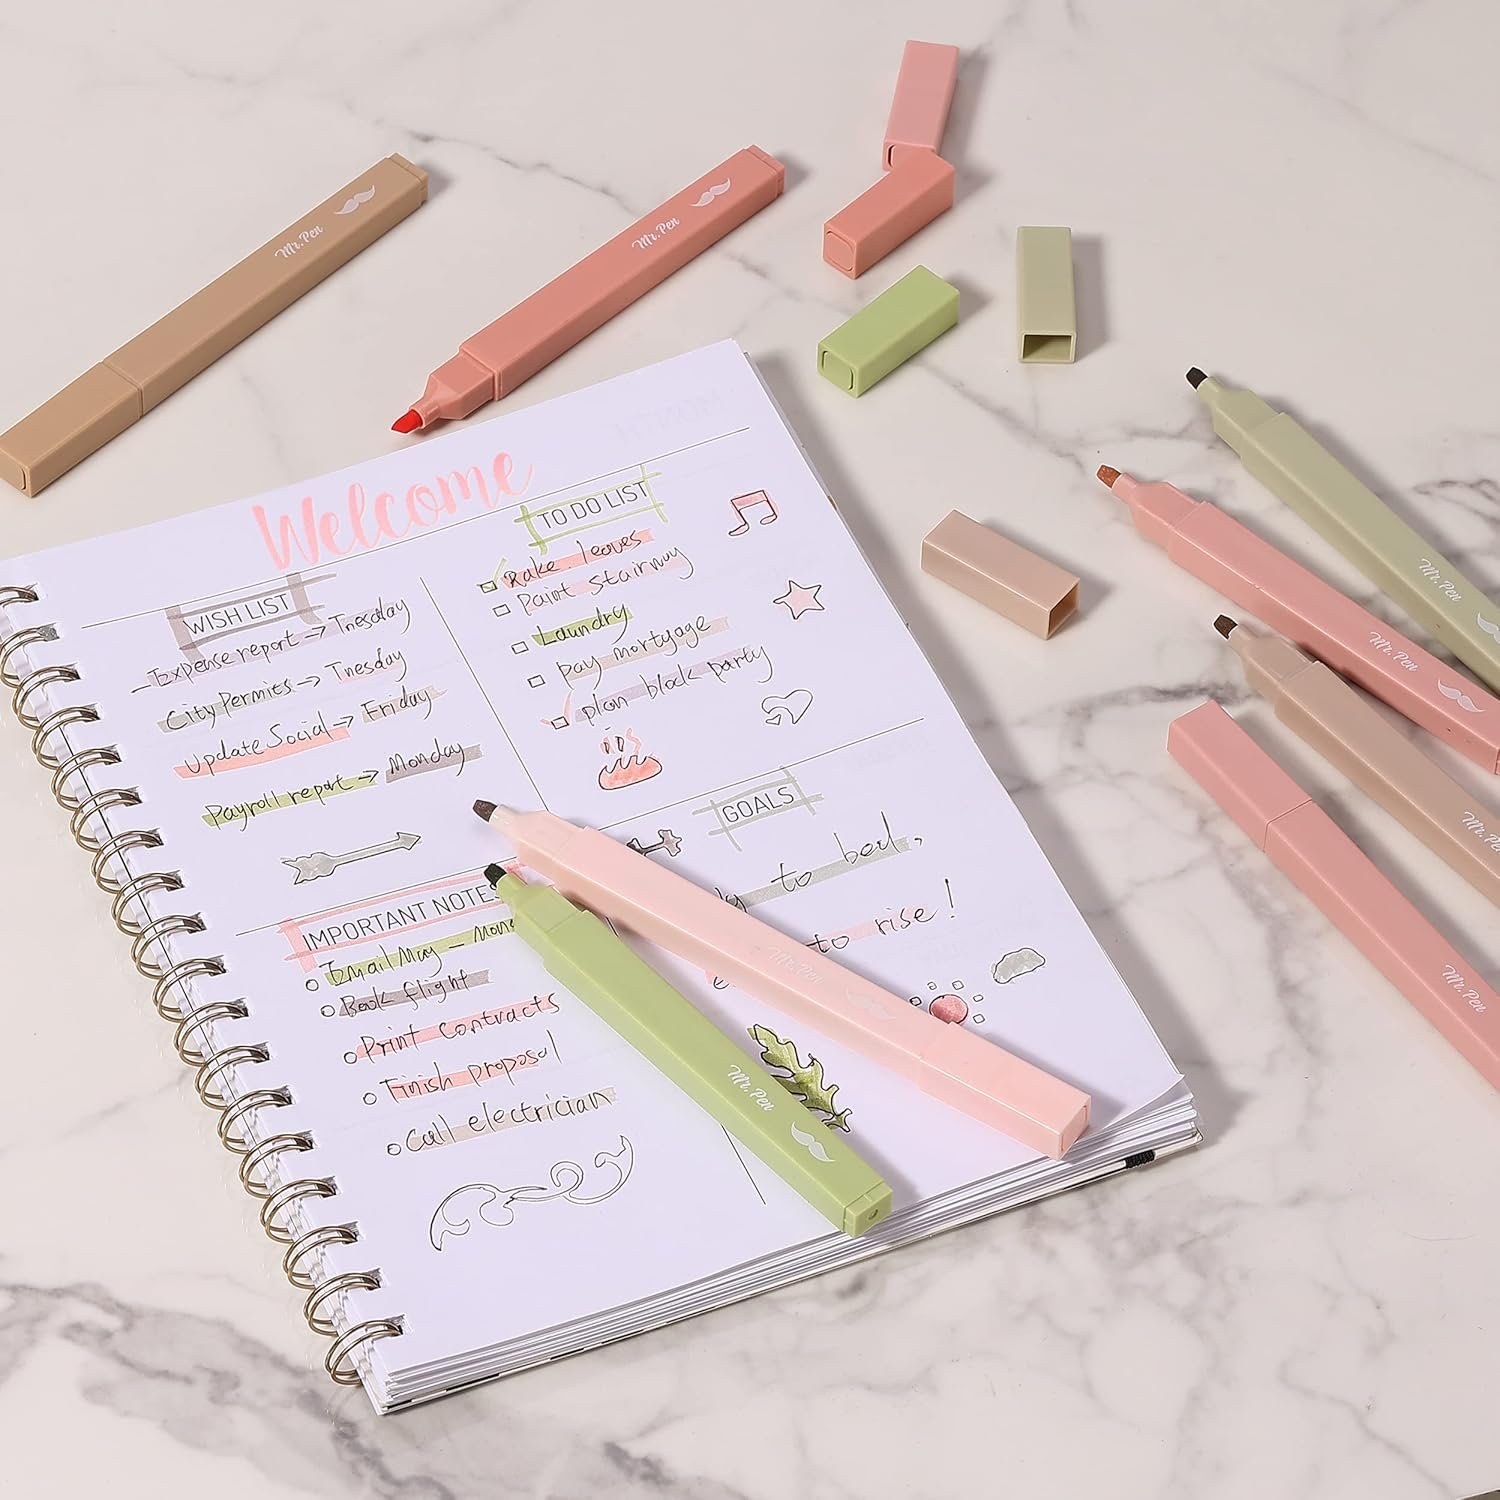 Mr. Pen
Mr. Pen
Welcome
WISH LIST
Expense report → Tuesday
City Permits → Tuesday
Update Social → Friday
Payroll report → Monday
TO DO LIST
Rake leaves
paint stairway
Laundry
pay mortgage
plan block party
IMPORTANT NOTES
Email May - Mon
Book flight
Print contracts
Finish proposal
Call electrician
GOALS
to bed,
to rise!
Mr. Pen
Mr. Pen
Mr. Pen
Mr. Pen
Mr. Pe
Mr. Pen